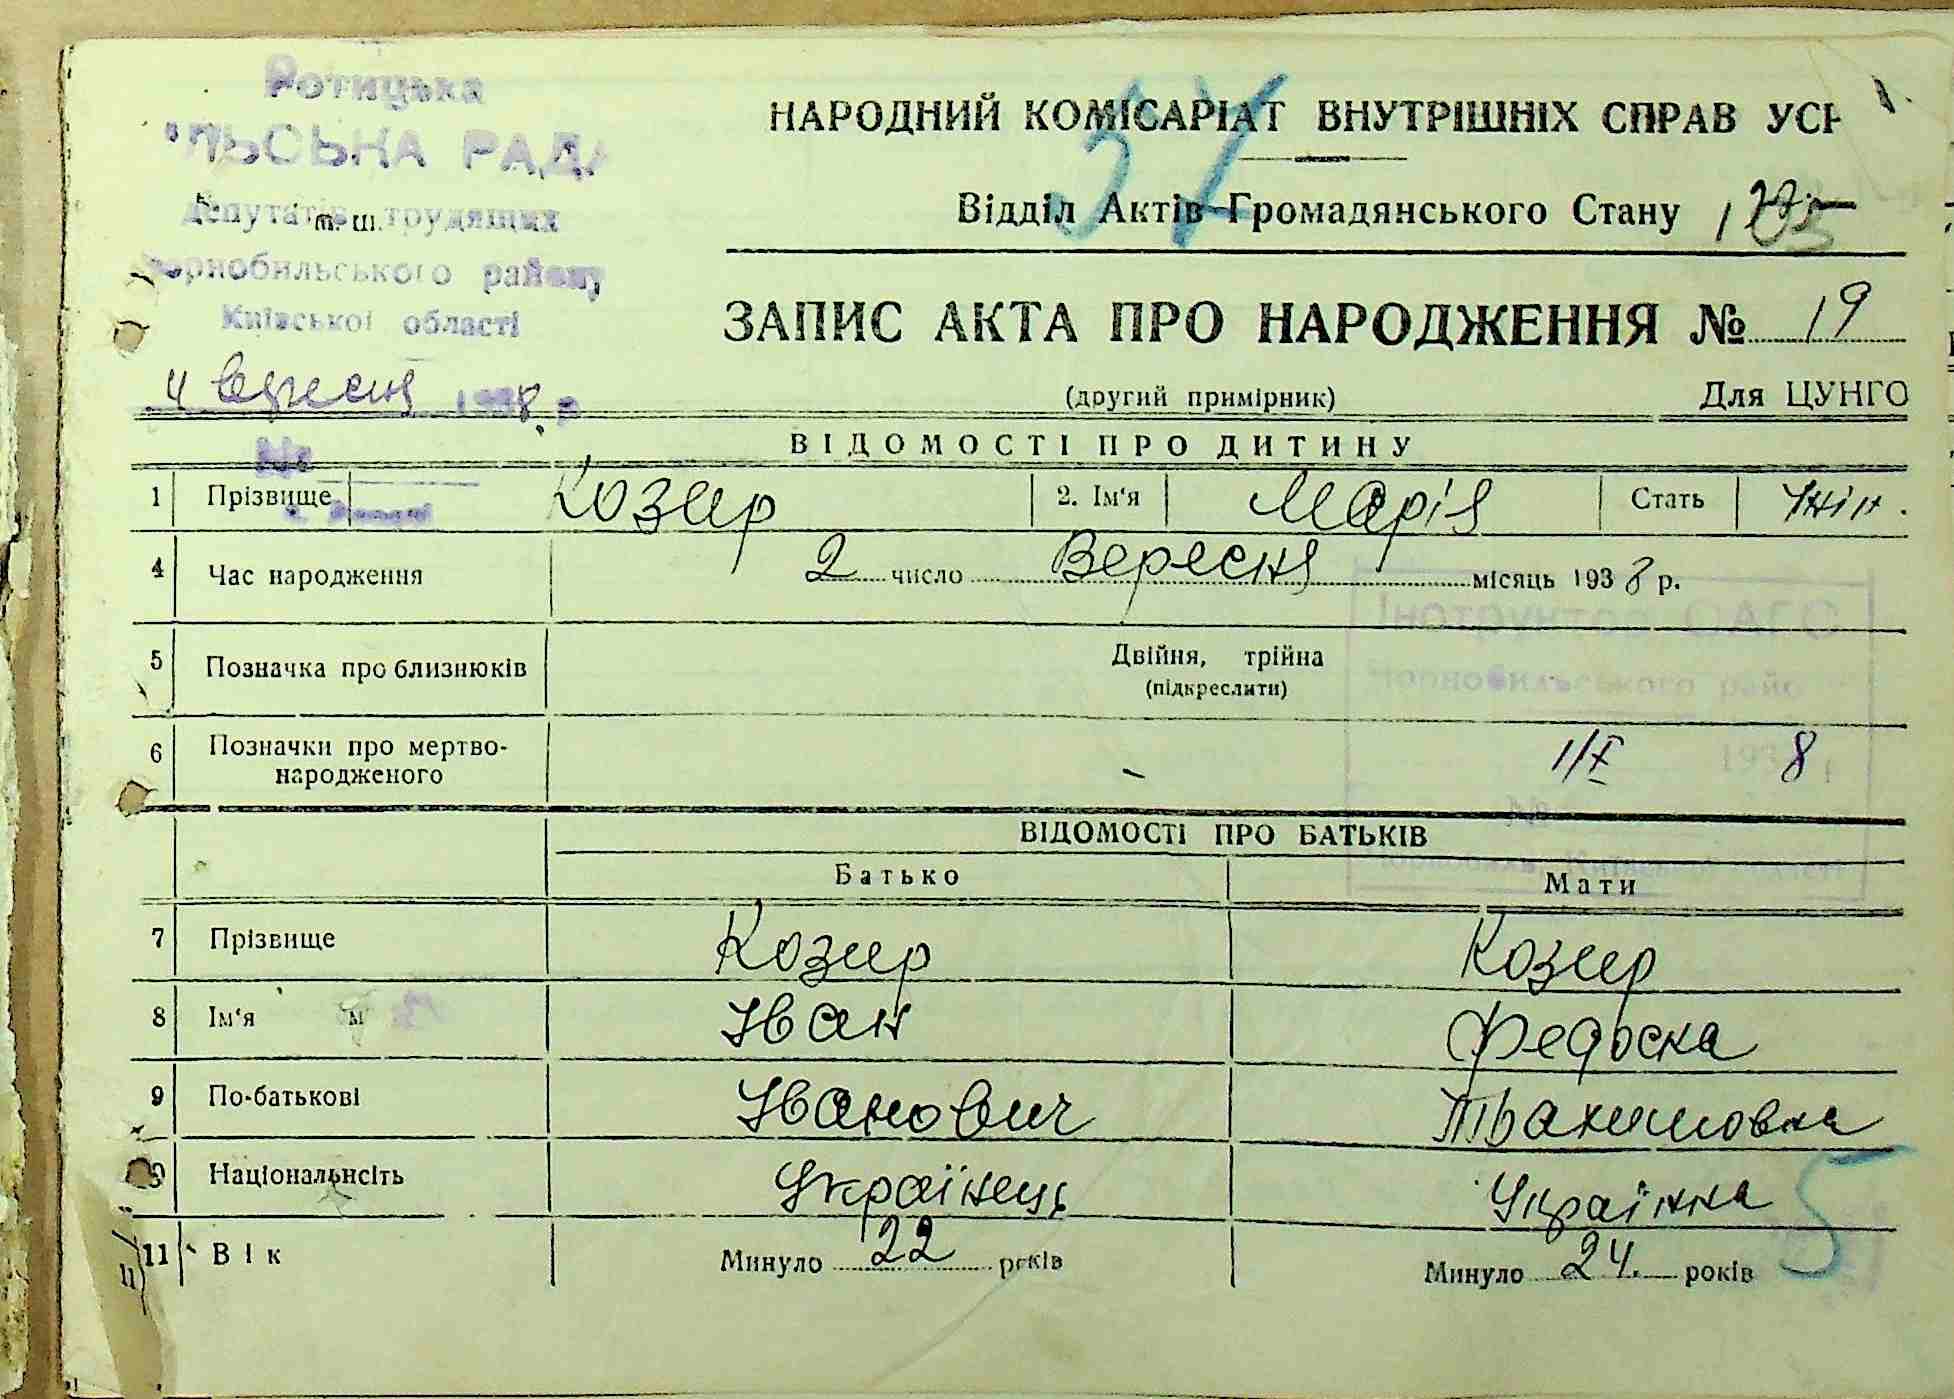 Ротицька
ЛЬСЬКА РАДА
депутатів трудящих
Чорнобильського району
Київської області
4 вересня 1938 р
№
НАРОДНИЙ КОМІСАРІАТ ВНУТРІШНІХ СПРАВ УСР
Відділ Актів Громадянського Стану
ЗАПИС АКТА ПРО НАРОДЖЕННЯ № 19
(другий примірник) Для ЦУНГО
ВІДОМОСТІ ПРО ДИТИНУ
1 Прізвище Козир 2. Ім'я Марія Стать жін.
4 Час народження 2 число Вересня місяць 1938 р.
5 Позначка про близнюків Двійня, трійна
(підкреслити)
6 Позначки про мертво-
народженого - 1/X 8
ВІДОМОСТІ ПРО БАТЬКІВ
Батько Мати
7 Прізвище Козир Козир
8 Ім'я Іван Федоска
9 По-батькові Іванович
Національнсіть Українець Українка
5
11 Вік Минуло 22 років Минуло 24. років